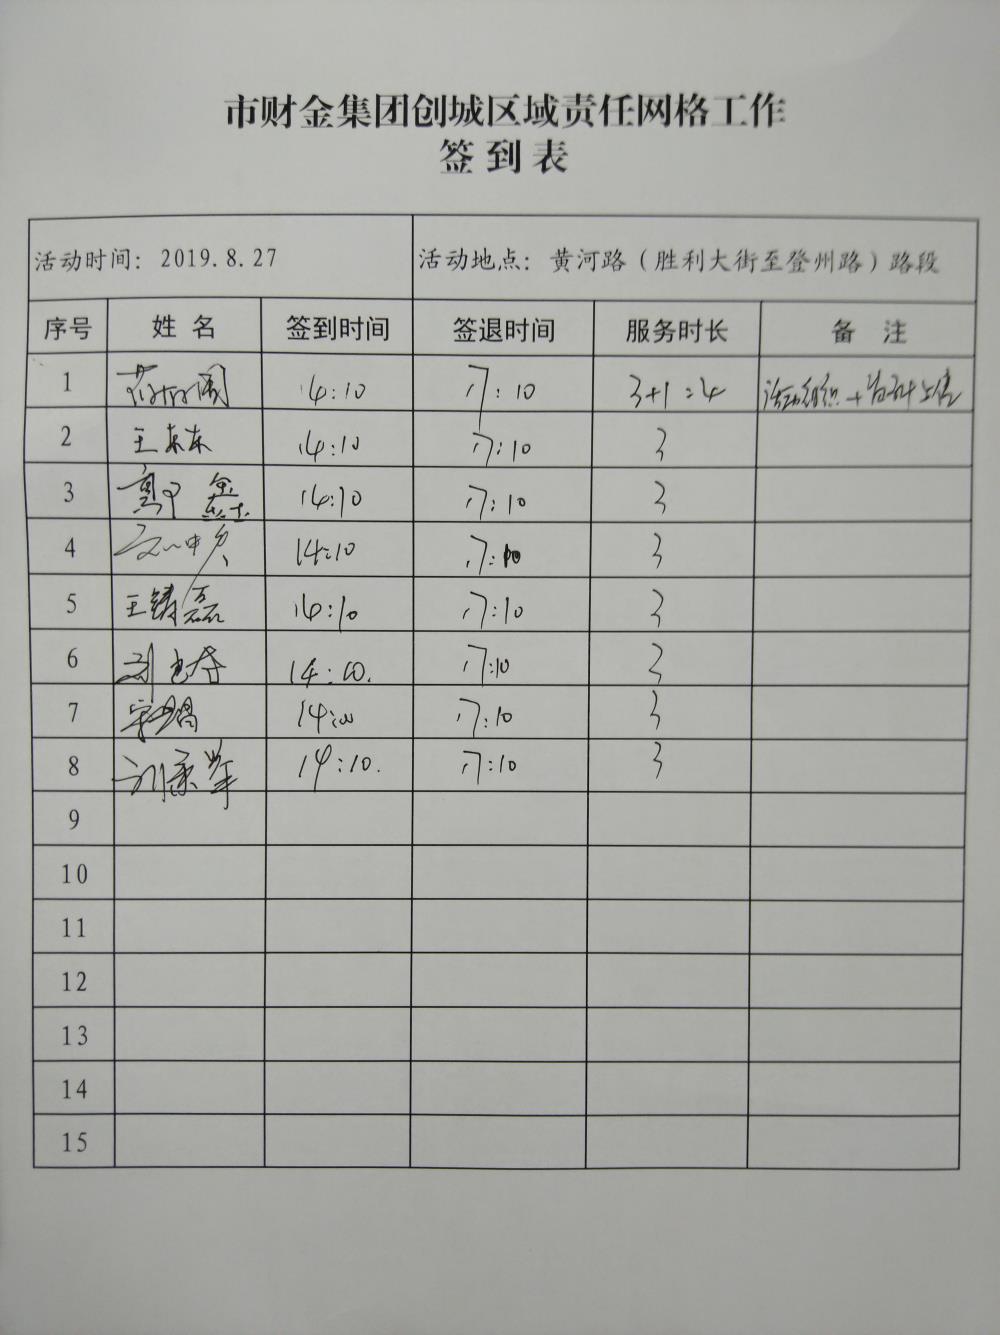 市财金集团创城区域责任网格工作
签到表
活动时间：2019.8.27 活动地点：黄河路（胜利大街至登州路）路段
序号 姓名 签到时间 签退时间 服务时长 备注
1 14:10 17:10 3+1=4 活动组织+
2 王东东 14:10 17:10 3
3 14:10 17:10 3
4 14:10 17:10 3
5 王铸磊 14:10 17:10 3
6 14:10. 17:10 3
7 14:10 17:10 3
8 14:10. 17:10 3
9
10
11
12
13
14
15